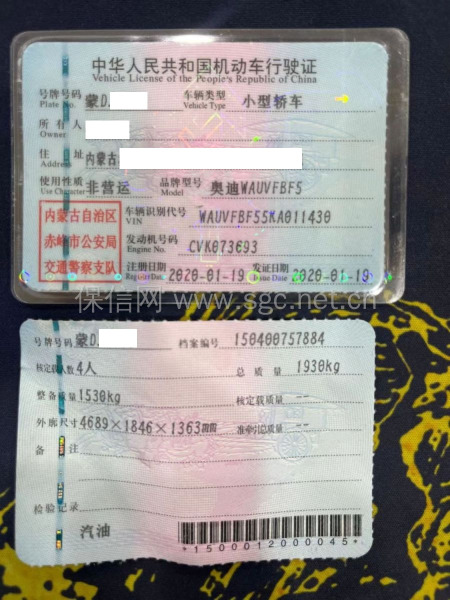 中华人民共和国机动车行驶证
Vehicle License of the People's Republic of China
号牌号码 蒙D. 车辆类型 小型轿车
Plate No. Vehicle Type
所有人
Owner
住址 内蒙古
Address
使用性质 非营运 品牌型号 奥迪WAUVFBF5
Use Character Model
内蒙古自治区
赤峰市公安局
交通警察支队
车辆识别代号 WAUVFBF55KA011430
VIN
发动机号码 CVK073693
Engine No.
注册日期 2020-01-19 发证日期 2020-01-19
Register Date Issue Date
保信网 www.sgc.net.cn
号牌号码 蒙D. 档案编号 150400757884
核定载人数 4人 总质量 1930kg
整备质量 1530kg 核定载质量 --
外廓尺寸 4689×1846×1363mm 准牵引总质量 --
备注
检验记录
汽油
*1500012000045*